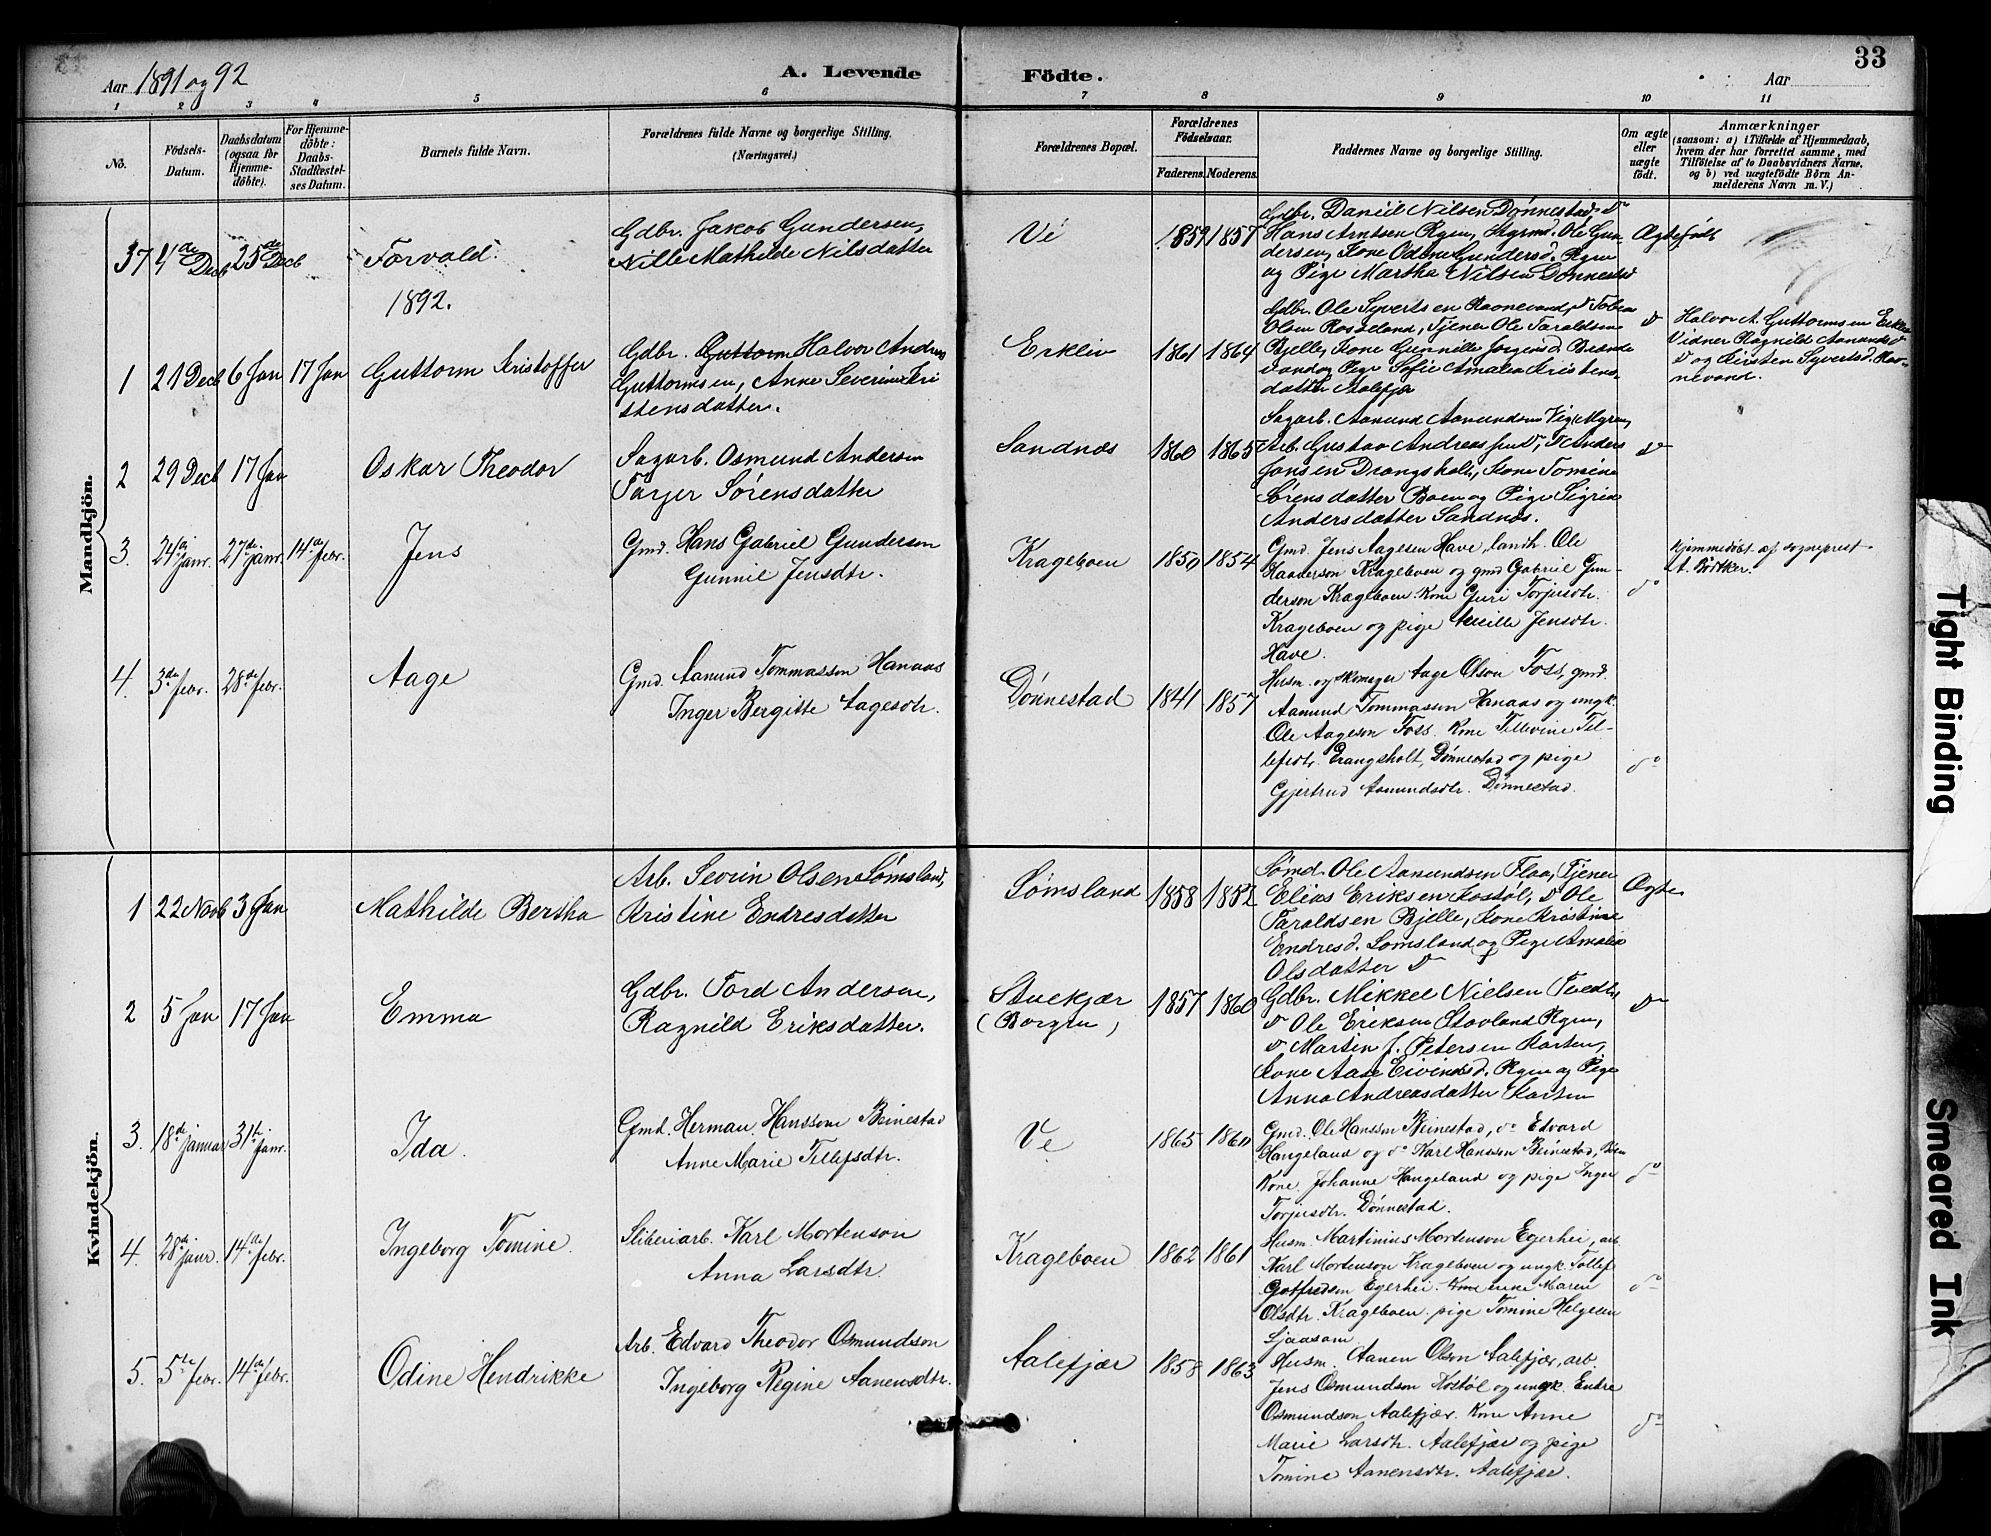 33
Aar 1891 og 92
A. Levende Födte.
Aar
1 2 3 4 5 6 7 8 9 10 11
No.
Födsels-Datum.
Daabsdatum (ogsaa for Hjemme-döbte).
For Hjemme-döbte: Daabs-Stadfæstel-ses Datum.
Barnets fulde Navn.
Forældrenes fulde Navne og borgerlige Stilling.
(Næringsvei.)
Forældrenes Bopæl.
Forældrenes Födselsaar.
Faderens. Moderens.
Faddernes Navne og borgerlige Stilling.
Om ægte eller uægte födt.
Anmærkninger
(saasom: a) i Tilfælde af Hjemmedaab,
hvem der har forrettet samme, med
Tilföielse af to Daabsvidners Navne,
og b) ved uægtefödte Börn An-
melderens Navn m. V.)
Mandkjön.
37 4de Decb 25de Decb
Torvald.
Gdbr. Jakob Gundersen,
Nille Mathilde Nilsdatter
Ve
1859 1857
Gdbr. Daniel Nilsen Dønnestad, do
Hans Arntsen Rgen, Styrmd. Ole Gun-
dersen, Kone Odine Gundersd. Rgen
og Pige Martha Nilsen Dønnestad
Ægtefödt
1892.
1 21 Decb 6 Jan 17 Jan
Guttorm Kristoffer
Gdbr. Guttorm Halvor Andreas
Guttormsen, Anne Severine Kri
stensdatter.
Erkliv
1861 1864
Gdbr. Ole Syvertsen Ravnevand, do Tobias
Olsen Rosseland, Tjener Ole Taraldsen
Bjelle, Kone Gunnille Jørgensd. Brande
vand og Pige Sofie Amalia Kristens-
datter Aalefjær
do
Halvor A. Guttormsen Erkliv
Vidner Ragnild Aanundsd
do og Kirsten Syvertsd. Rav-
nevand.
2 29 Decb 17 Jan
Oskar Theodor
Sagarb. Osmund Andersen
Tarjer Sørensdatter
Sandnæs
1860 1865
Sagarb. Aanund Aanundsen Vig, Myren,
Arb. Gustav Andreassen do, do Anders
Jansen Drangsholt, Kone Tomine
Sørensdatter Boen og Pige Sigrid
Andersdatter Sandnæs.
do
3. 24de janr. 27de janr. 14de febr.
Jens
Gmd. Hans Gabriel Gunderson
Gunnil Jensdtr.
Krageboen
1850 1854
Gmd. Jens Aagesen Have, landh. Ole
Haaderson Krageboen og gmd Gabriel Gun-
derson Krageboen. Kone Guri Torjusdtr.
Krageboen og pige Jensdtr.
Have.
do
Hjemmedöbt af sogneprest
A. Bødtker.
4. 3de febr. 28de febr.
Aage
Gmd. Aanund Tommasson Hanaas
Inger Bergitte Aagesdtr.
Dønnestad
1841 1857
Husm. og skomager Aage Olson Foss, gmd.
Aanund Tommassen Hanaas og ungk.
Ole Aageson Foss. Kone Tellevine Tel-
lefsdtr. Drangsholt, Dønnestad og pige
Gjertrud Aanundsdtr. Dønnestad.
do
Kvindekjön.
1 22 Novb 3 Jan
Mathilde Bertha
Arb. Sevrin Olsen Sømsland,
Kristine Endresdatter
Sømsland
1858 1852
Sømd. Ole Aanundsen Flaa, Tjener
Elias Eriksen Kostøl, do Ole
Taraldsen Bjelle, Kone Kristine
Endresd. Somsland og Pige Amalia
Olsdatter do
Ægte
2 5 Jan 17 Jan
Emma
Gdbr. Tord Andersen,
Ragnild Eriksdatter.
Stuekjær
(Borgen)
1857 1860
Gdbr. Mikkel Nielsen Tvedt,
do Ole Eriksen Stovland Rgen,
do Martin J. Petersen Karten,
Kone Aase Eivindsd. Rgen og Pige
Anna Andreasdatter Karten
do
3. 18de januar 31te janr.
Ida.
Gmd. Herman Hansson Beinestad
Anne Marie Tellefsdtr.
Ve
1865 1860
Gmd. Ole Hansson Beinestad, do Edvard
Hangeland og do Karl Hansson Beinestad, Boen
Kone Johanne Hangeland og pige Inger
Torjusdtr. Dønnestad.
do
4. 28de janr. 14de febr.
Ingeborg Tomine.
Sliberiarb. Karl Mortenson
Anna Larsdtr.
Krageboen
1862 1861
Husm. Martinius Mortenson Egerhei, arb.
Karl Mortenson Krageboen og ungk. Tollef
Gotfredson Egerhei. Kone enke Maren
Olsdtr. Krageboen. pige Tomine Helgesen
Ljaasam
do
5. 5te febr. 14de febr.
Odine Hendrikke
Arb. Edvard Theodor Osmundson
Ingeborg Regine Aanensdtr.
Aalefjær
1858 1863
Husm. Aanen Olson Aalefjær, arb.
Jens Osmundson Kostøl og ungk. Endre
Osmundson Aalefjær. Kone Anne
Marie Larsdtr. Aalefjær og pige
Tomine Aanensdtr. Aalefjær.
do
Tight Binding
Smeared Ink